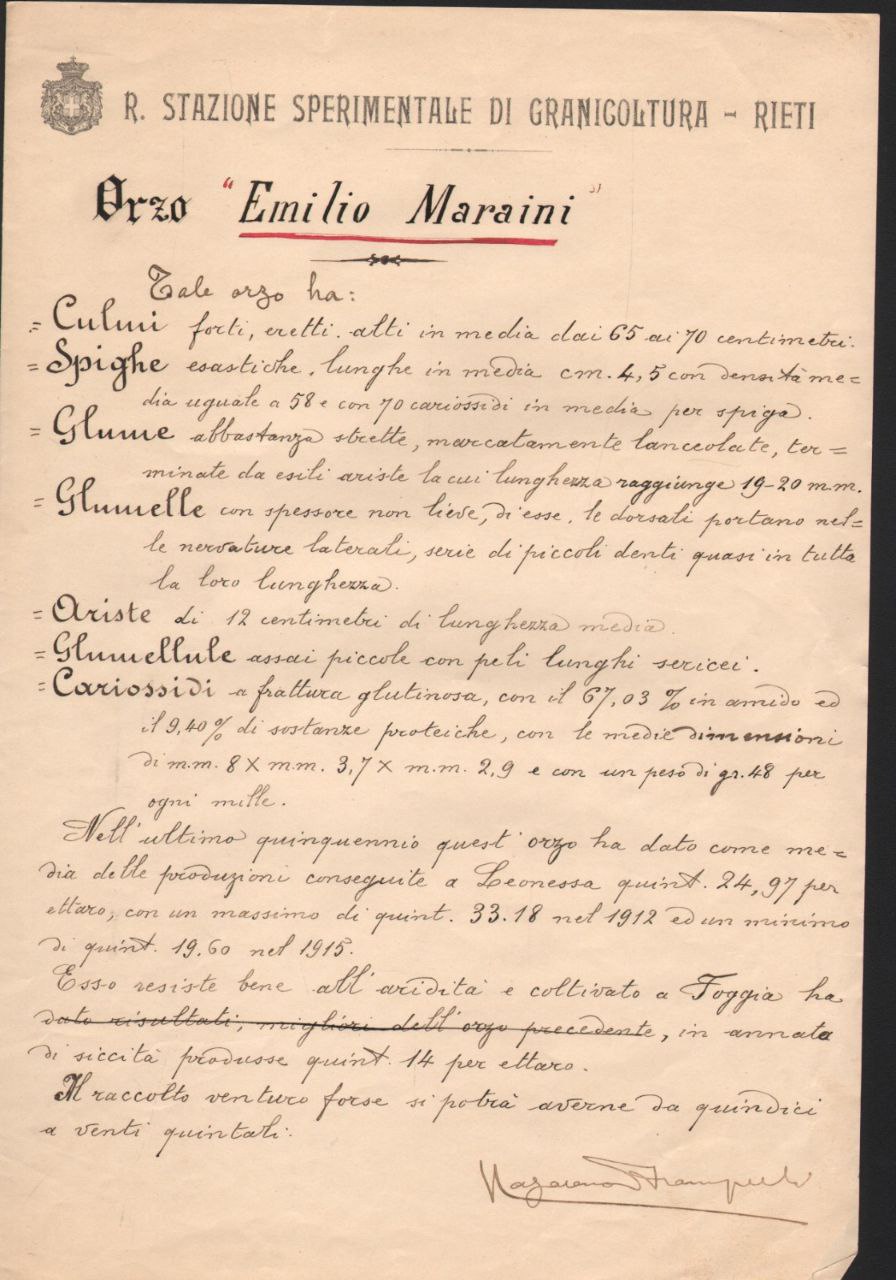 R. STAZIONE SPERIMENTALE DI GRANICOLTURA - RIETI
Orzo "Emilio Maraini"
Tale orzo ha:
= Culmi forti, eretti. alti in media dai 65 ai 70 centimetri.
= Spighe esastiche, lunghe in media cm. 4,5 con densità me=
dia uguale a 58 e con 70 cariossidi in media per spiga.
= Glume abbastanza strette, marcatamente lanceolate, ter=
minate da esili ariste la cui lunghezza raggiunge 19-20 m.m.
= Glumelle con spessore non lieve, di esse, le dorsali portano nel=
le nervature laterali, serie di piccoli denti quasi in tutta
la loro lunghezza.
= Ariste di 12 centimetri di lunghezza media.
= Glumellule assai piccole con peli lunghi sericei.
= Cariossidi a frattura glutinosa, con il 67,03 % in amido ed
il 9,40 % di sostanze proteiche, con le medie dimensioni
di m.m. 8 X m.m. 3,7 X m.m. 2,9 e con un peso di gr. 48 per
ogni mille.
Nell'ultimo quinquennio quest'orzo ha dato come me=
dia delle produzioni conseguite a Leonessa quint. 24,97 per
ettaro, con un massimo di quint. 33.18 nel 1912 ed un minimo
di quint. 19.60 nel 1915.
Esso resiste bene all'aridità e coltivato a Foggia ha
dato risultati, migliori dell'orzo precedente, in annata
di siccità produsse quint. 14 per ettaro.
Il raccolto venturo forse si potrà averne da quindici
a venti quintali.
Nazareno Strampelli